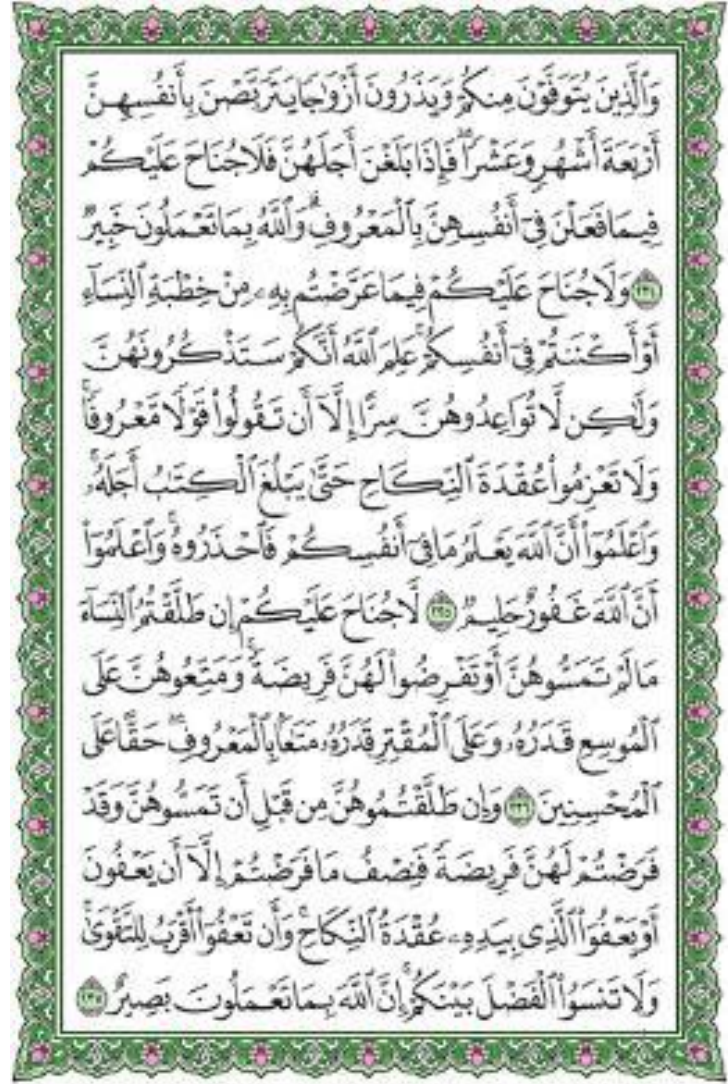 وَٱلَّذِينَ يُتَوَفَّوْنَ مِنكُمْ وَيَذَرُونَ أَزْوَٰجًا يَتَرَبَّصْنَ بِأَنفُسِهِنَّ
أَرْبَعَةَ أَشْهُرٍ وَعَشْرًا ۖ فَإِذَا بَلَغْنَ أَجَلَهُنَّ فَلَا جُنَاحَ عَلَيْكُمْ
فِيمَا فَعَلْنَ فِىٓ أَنفُسِهِنَّ بِٱلْمَعْرُوفِ ۗ وَٱللَّهُ بِمَا تَعْمَلُونَ خَبِيرٌ
۝٢٣٤ وَلَا جُنَاحَ عَلَيْكُمْ فِيمَا عَرَّضْتُم بِهِۦ مِنْ خِطْبَةِ ٱلنِّسَآءِ
أَوْ أَكْنَنتُمْ فِىٓ أَنفُسِكُمْ ۚ عَلِمَ ٱللَّهُ أَنَّكُمْ سَتَذْكُرُونَهُنَّ
وَلَٰكِن لَّا تُوَاعِدُوهُنَّ سِرًّا إِلَّآ أَن تَقُولُوا۟ قَوْلًا مَّعْرُوفًا ۚ
وَلَا تَعْزِمُوا۟ عُقْدَةَ ٱلنِّكَاحِ حَتَّىٰ يَبْلُغَ ٱلْكِتَٰبُ أَجَلَهُۥ ۚ
وَٱعْلَمُوٓا۟ أَنَّ ٱللَّهَ يَعْلَمُ مَا فِىٓ أَنفُسِكُمْ فَٱحْذَرُوهُ ۚ وَٱعْلَمُوٓا۟
أَنَّ ٱللَّهَ غَفُورٌ حَلِيمٌ ۝٢٣٥ لَّا جُنَاحَ عَلَيْكُمْ إِن طَلَّقْتُمُ ٱلنِّسَآءَ
مَا لَمْ تَمَسُّوهُنَّ أَوْ تَفْرِضُوا۟ لَهُنَّ فَرِيضَةً ۚ وَمَتِّعُوهُنَّ عَلَى
ٱلْمُوسِعِ قَدَرُهُۥ وَعَلَى ٱلْمُقْتِرِ قَدَرُهُۥ مَتَٰعًۢا بِٱلْمَعْرُوفِ ۖ حَقًّا عَلَى
ٱلْمُحْسِنِينَ ۝٢٣٦ وَإِن طَلَّقْتُمُوهُنَّ مِن قَبْلِ أَن تَمَسُّوهُنَّ وَقَدْ
فَرَضْتُمْ لَهُنَّ فَرِيضَةً فَنِصْفُ مَا فَرَضْتُمْ إِلَّآ أَن يَعْفُونَ
أَوْ يَعْفُوَا۟ ٱلَّذِى بِيَدِهِۦ عُقْدَةُ ٱلنِّكَاحِ ۚ وَأَن تَعْفُوٓا۟ أَقْرَبُ لِلتَّقْوَىٰ ۚ
وَلَا تَنسَوُا۟ ٱلْفَضْلَ بَيْنَكُمْ ۚ إِنَّ ٱللَّهَ بِمَا تَعْمَلُونَ بَصِيرٌ ۝٢٣٧